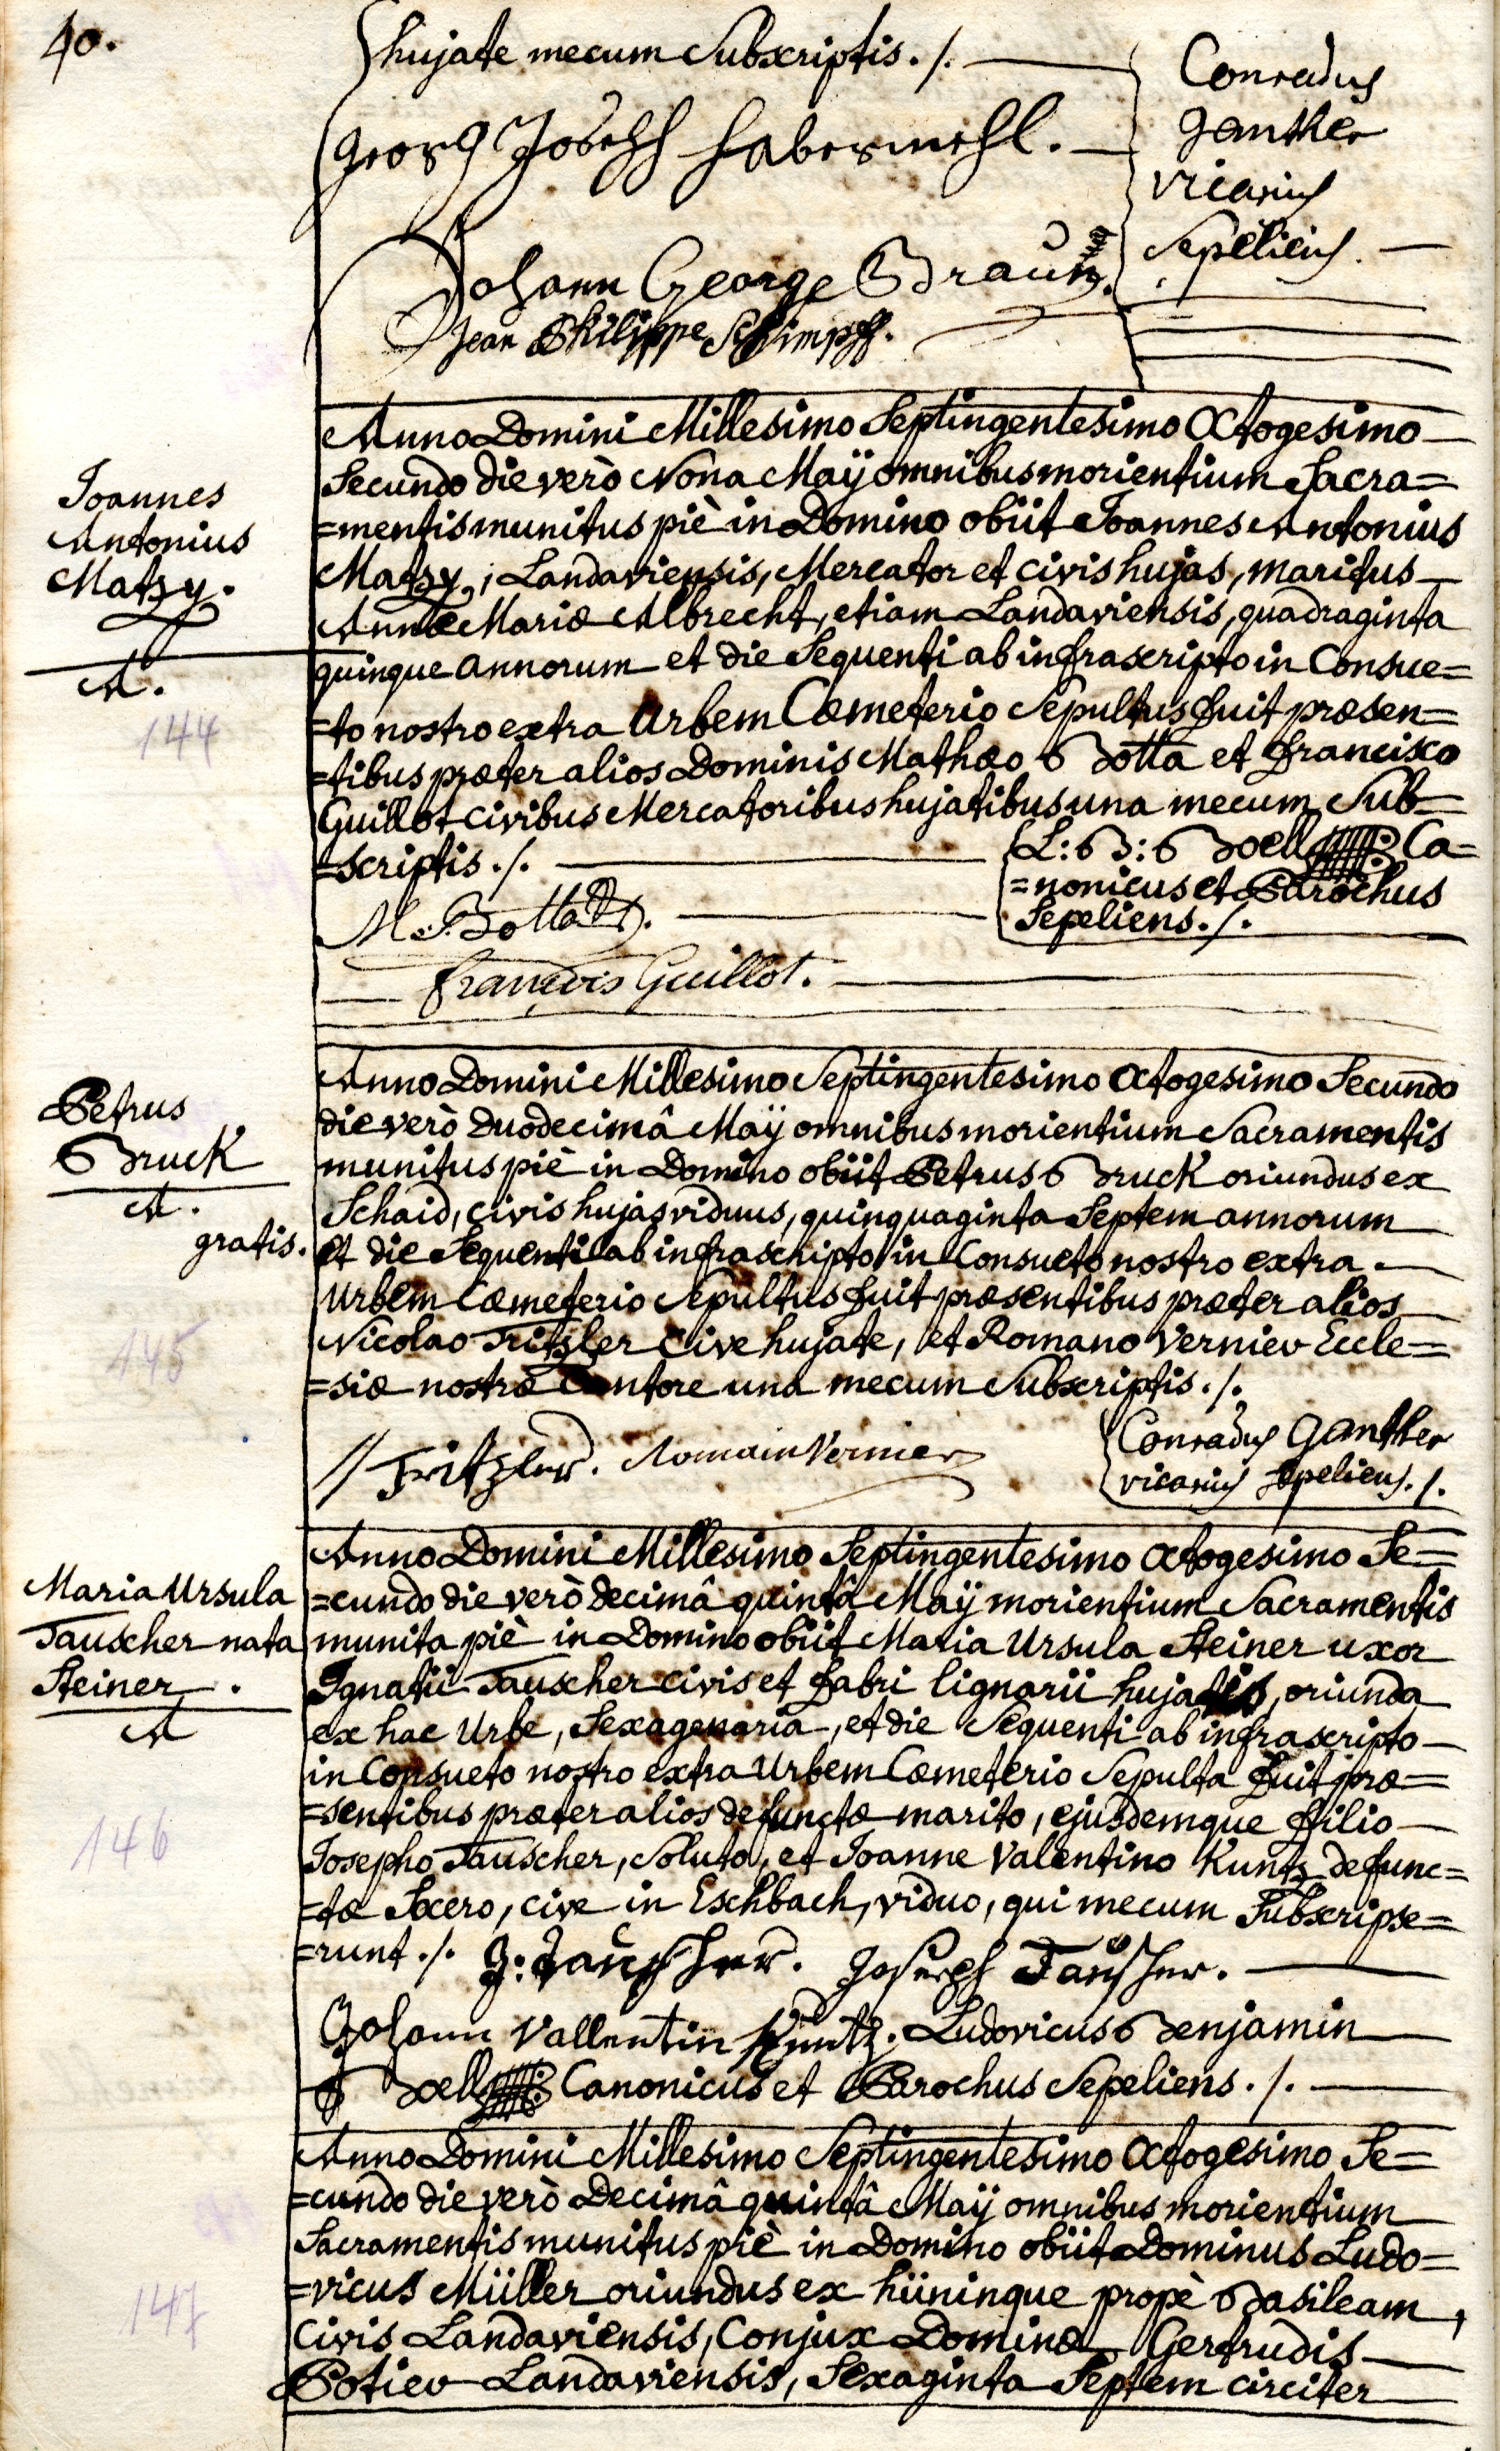 40.
hujate mecum Subscriptis ./.
Conradus
Ganther
vicarius
Sepeliens.
Georg Joseph Habermehl.
Johann George Braun.
Jean Philippe Schimpff.
Anno Domini Millesimo Septingentesimo Octogesimo
Secundo die verò Nona Maÿ omnibus morientium Sacra=
=mentis munitus piè in Domino obiit Joannes Antonius
Matzy, Landaviensis, Mercator et civis hujas, maritus
Annæ Mariæ Albrecht, etiam Landaviensis, quadraginta
quinque annorum et die Sequenti ab infrascripto in Consue=
=to nostro extra Urbem Cœmeterio Sepultus fuit præsen=
=tibus præter alios Dominis Mathæo Botta et Francisco
Guillot civibus Mercatoribus hujatibus una mecum Sub=
=scriptis ./.
Joannes
Antonius
Matzy.
A.
144
L: B: Boell Ca=
=nonicus et Parochus
Sepeliens ./.
M. Botta.
François Guillot.
Anno Domini Millesimo Septingentesimo Octogesimo Secundo
die verò duodecimâ Maÿ omnibus morientium Sacramentis
munitus piè in Domino obiit Petrus Bruck oriundus ex
Schaid, civis hujas viduus, quinquaginta Septem annorum
et die Sequenti ab infrascripto in Consueto nostro extra
Urbem Cœmeterio Sepultus fuit præsentibus præter alios
Nicolao Fritzler Cive hujate, et Romano Vernier Eccle=
=siæ nostræ Cantore una mecum Subscriptis ./.
Petrus
Bruck
A.
gratis.
145
Fritzler. Romain Vernier
Conradus Ganther
vicarius Sepeliens ./.
Anno Domini Millesimo Septingentesimo Octogesimo Se=
=cundo die verò decimâ quintâ Maÿ morientium Sacramentis
munita piè in Domino obiit Maria Ursula Steiner uxor
Ignatii Tauscher civis et fabri lignarii hujatis, oriunda
ex hac Urbe, Sexagenaria, et die Sequenti ab infrascripto
in Consueto nostro extra Urbem Cœmeterio Sepulta fuit præ=
=sentibus præter alios defunctæ marito, ejusdemque filio
Josepho Tauscher, Soluto, et Joanne Valentino Kuntz defunc=
=tæ Socero, cive in Eschbach, viduo, qui mecum Subscripse=
=runt ./. J: Tauscher. Joseph Tauscher.
Johann Vallentin Kuntz. Ludovicus Benjamin
Boell Canonicus et Parochus Sepeliens ./.
Maria Ursula
Tauscher nata
Steiner.
A
146
Anno Domini Millesimo Septingentesimo Octogesimo Se=
=cundo die verò Decimâ quintâ Maÿ omnibus morientium
Sacramentis munitus piè in Domino obiit Dominus Ludo=
=vicus Müller oriundus ex hüninque propè Basileam,
Civis Landaviensis, Conjux Dominæ Gertrudis
Potier Landaviensis, Sexaginta Septem circiter
147